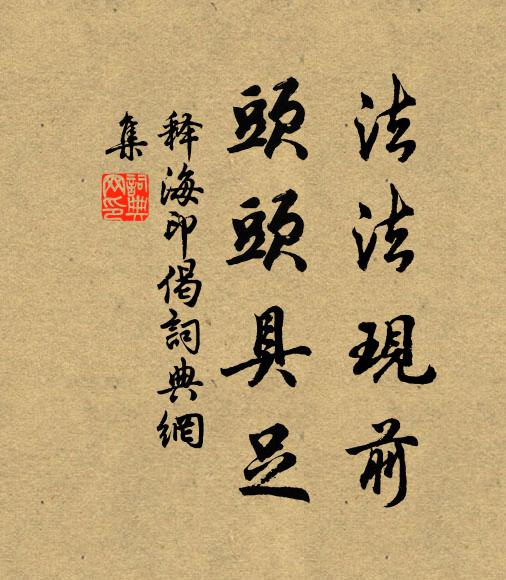 法法現前
頭頭具足
释海印偈詞典網
集
詞典网印